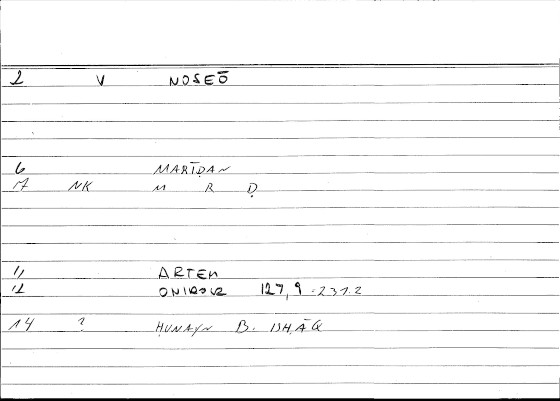 2 V NOSEŌ
6 MARĪḌAN
17 NK M R Ḍ
11 ARTEM
12 ONIROCR 127,9-231.2
14 ? HUNAYN B. ISHĀQ